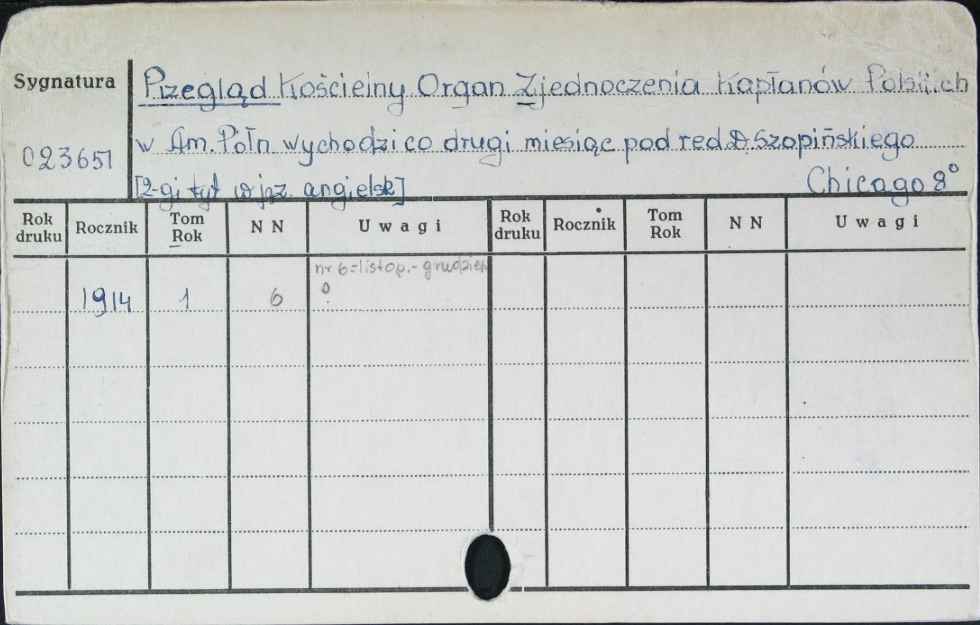 Sygnatura
Przegląd Kościelny Organ Zjednoczenia Kapłanów Polskich
w Am. Półn wychodzi co drugi miesiąc pod red D. Szopińskiego
023651
[2-gi tyt w jęz. angielsk]
Chicago 8°
Rok druku Rocznik Tom Rok N N Uwagi Rok druku Rocznik Tom Rok N N Uwagi
nr 6=listop.-grudzień
1914 1 6 ?